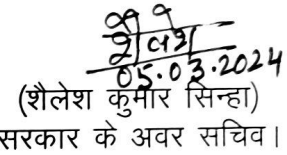 शैलेश
05.03.2024
(शैलेश कुमार सिन्हा)
सरकार के अवर सचिव।